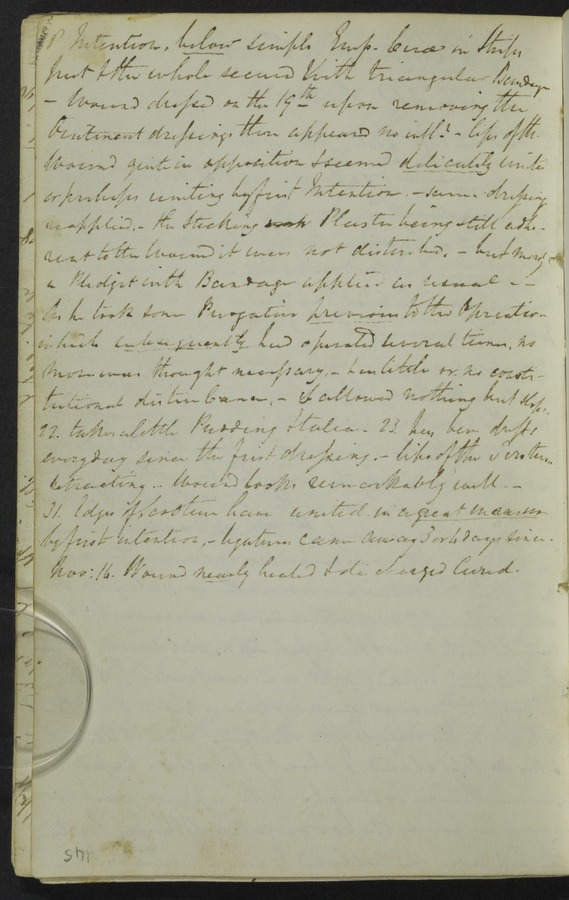 Intention, below simple Emp. Cerae in Strips
first & the whole secured with triangular Bandage
- Wound dressed on the 19th upon removing the
Ointment dressings there appeared no infl? - lips of the
Wound quite in opposition & seemed delicately united
or perhaps uniting by first Intention. - same dressing
reapplied. - the Stocking Plaster being still adhe-
rent to the Wound it was not disturbed, - but merely
a Pledget with Bandage applied as usual -
As he took some Purgative previous to the Operation
which subsequently had operated several times, no
more was thought necessary, - has little or no consti-
tutional disturbance, - is allowed nothing but slops.
22. takes a little Pudding & tea. 23. has been dressed
every day since the first dressing. - lips of the
retracting. - Wound looks remarkably well. -
31. Edges of have united in a great measure
by first intention, - ligatures came away 3 or 4 days since.
Nov: 16. Wound nearly healed & discharged Cured.